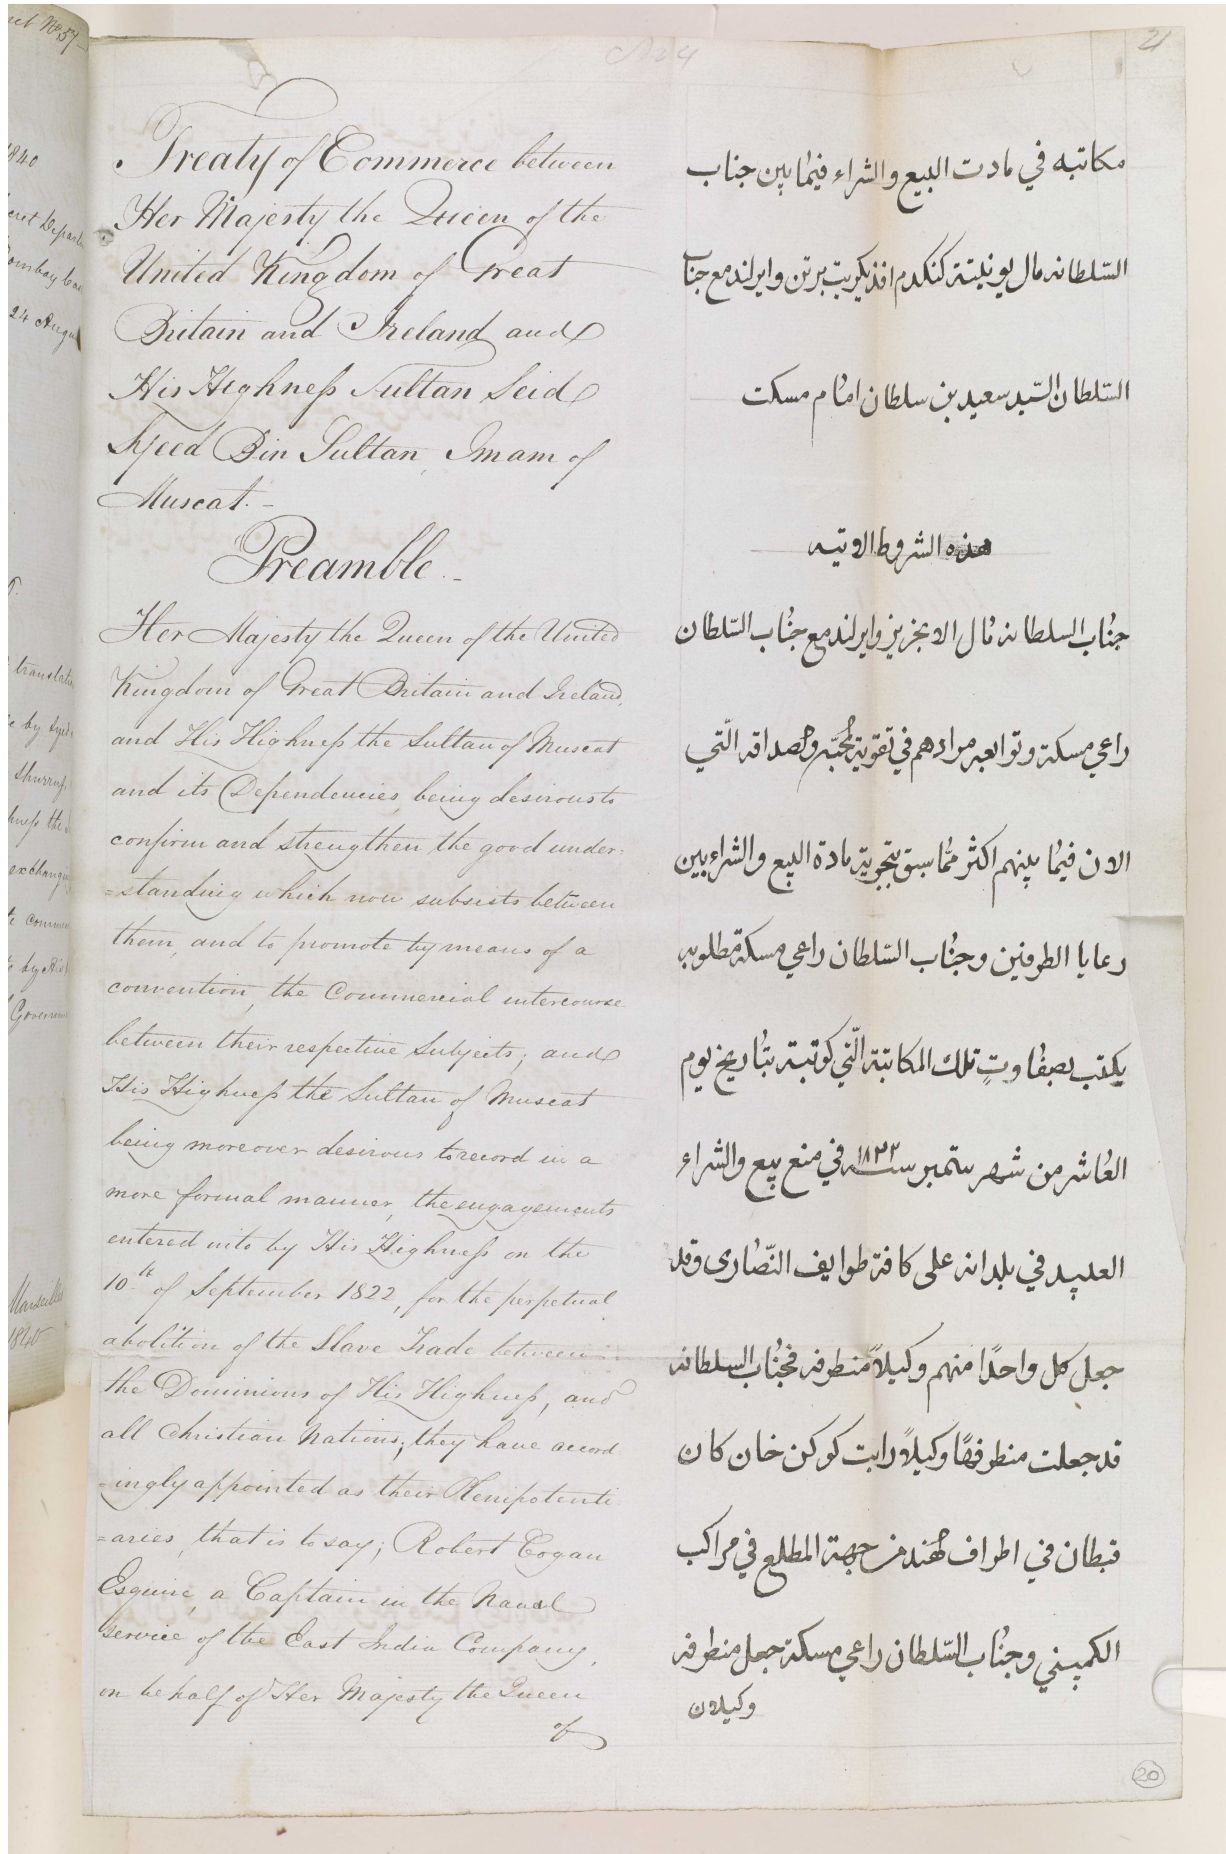 21
Treaty of Commerce between
Her Majesty the Queen of the
United Kingdom of Great
Britain and Ireland and
His Highness Sultan Seid
Syeed Bin Sultan, Imam of
Muscat.-
Preamble.-
Her Majesty the Queen of the United
Kingdom of Great Britain and Ireland,
and His Highness the Sultan of Muscat
and its Dependencies, being desirous to
confirm and strengthen the good under-
=standing which now subsists between
them, and to promote by means of a
convention, the Commercial intercourse
between their respective Subjects; and
His Highness the Sultan of Muscat
being moreover desirous to record in a
more formal manner, the engagements
entered into by His Highness on the
10th. of September 1822, for the perpetual
abolition of the Slave Trade between
the Dominions of His Highness, and
all Christian Nations; they have accord
-ingly appointed as their Plenipotenti
=aries, that is to say; Robert Cogan
Esquire, a Captain in the Naval
service of the East India Company,
on behalf of Her Majesty the Queen
of
مكاتبه في مادت البيع والشراء فيما بين جناب
السلطانه مال يونيتة كنكدم افذ كريت برتن وايرلند مع جناب
السلطان السيد سعيد بن سلطان امام مسكت
هذه الشروط الاتيه
جناب السلطانه مال الانجزيز وايرلند مع جناب السلطان
راعي مسكة وتوابعه مرادهم في تقوية المحبه والصداقه الّتي
الان فيما بينهم اكثر ممّا سبق بتجوية مادة البيع والشراء بين
رعايا الطرفين وجناب السلطان راعي مسكة مطلوبه
يكتب تلك المكاتبة الّتي كوتبة بتاريخ يوم
العاشر من شهر ستمبر سنه ١٨٢٢ في منع بيع والشراء
العبيد في بلدانه على كافة طوايف النّصارى وقد
جعل كل واحدًا منهم وكيلاً منطرفه فجناب السلطانه
قد جعلت منطرفها وكيلاً رابت كوكن خان كان
قبطان في اطراف الهند من جهة المطلع في مراكب
الكمپني وجناب السّلطان راعي مسكة جعل منطرفه
وكيلان
20